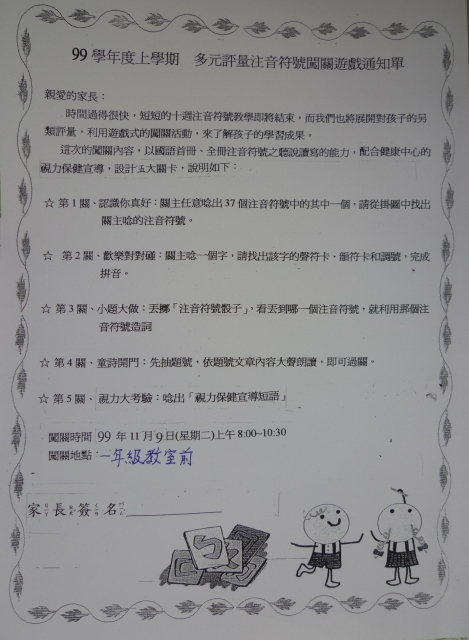 99 學年度上學期　多元評量注音符號闖關遊戲通知單
親愛的家長：
時間過得很快，短短的十週注音符號教學即將結束，而我們也將展開對孩子的另
類評量，利用遊戲式的闖關活動，來了解孩子的學習成果。
這次的闖關內容，以國語首冊、全冊注音符號之聽說讀寫的能力，配合健康中心的
視力保健宣導，設計五大關卡，說明如下：
☆ 第 1 關、認識你真好：關主任意唸出 37 個注音符號中的其中一個，請從掛圖中找出
關主唸的注音符號。
☆ 第 2 關、歡樂對對碰：關主唸一個字，請找出該字的聲符卡、韻符卡和調號，完成
拼音。
☆ 第 3 關、小題大做：丟擲「注音符號骰子」，看丟到哪一個注音符號，就利用那個注
音符號造詞
☆ 第 4 關、童詩開門：先抽題號，依題號文章內容大聲朗讀，即可過關。
☆ 第 5 關、視力大考驗：唸出「視力保健宣導短語」
闖關時間 99 年 11 月 9 日(星期二)上午 8:00~10:30
闖關地點：一年級教室前
家長簽名